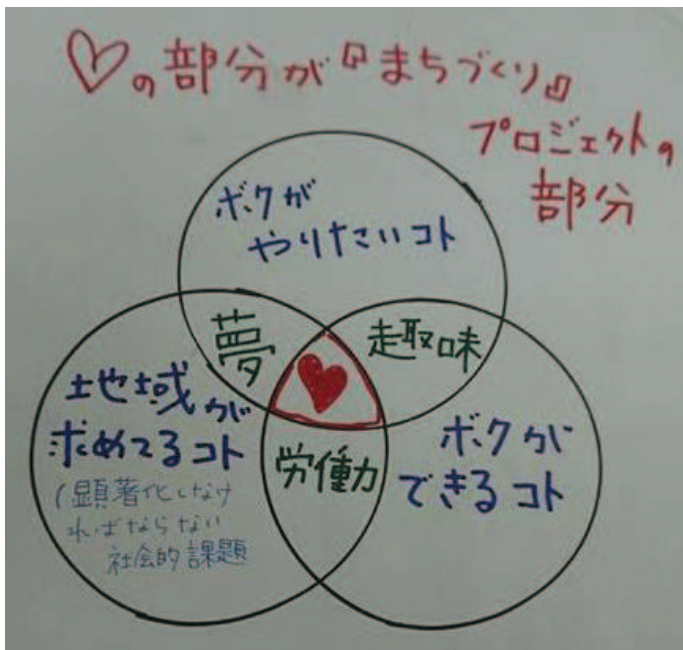 ♡の部分が『まちづくり』
プロジェクトの
部分
ボクが
やりたいコト
夢
趣味
地域が
求めてるコト
(顕著化しなけ
ればならない
社会的課題
労働力
ボクが
できるコト